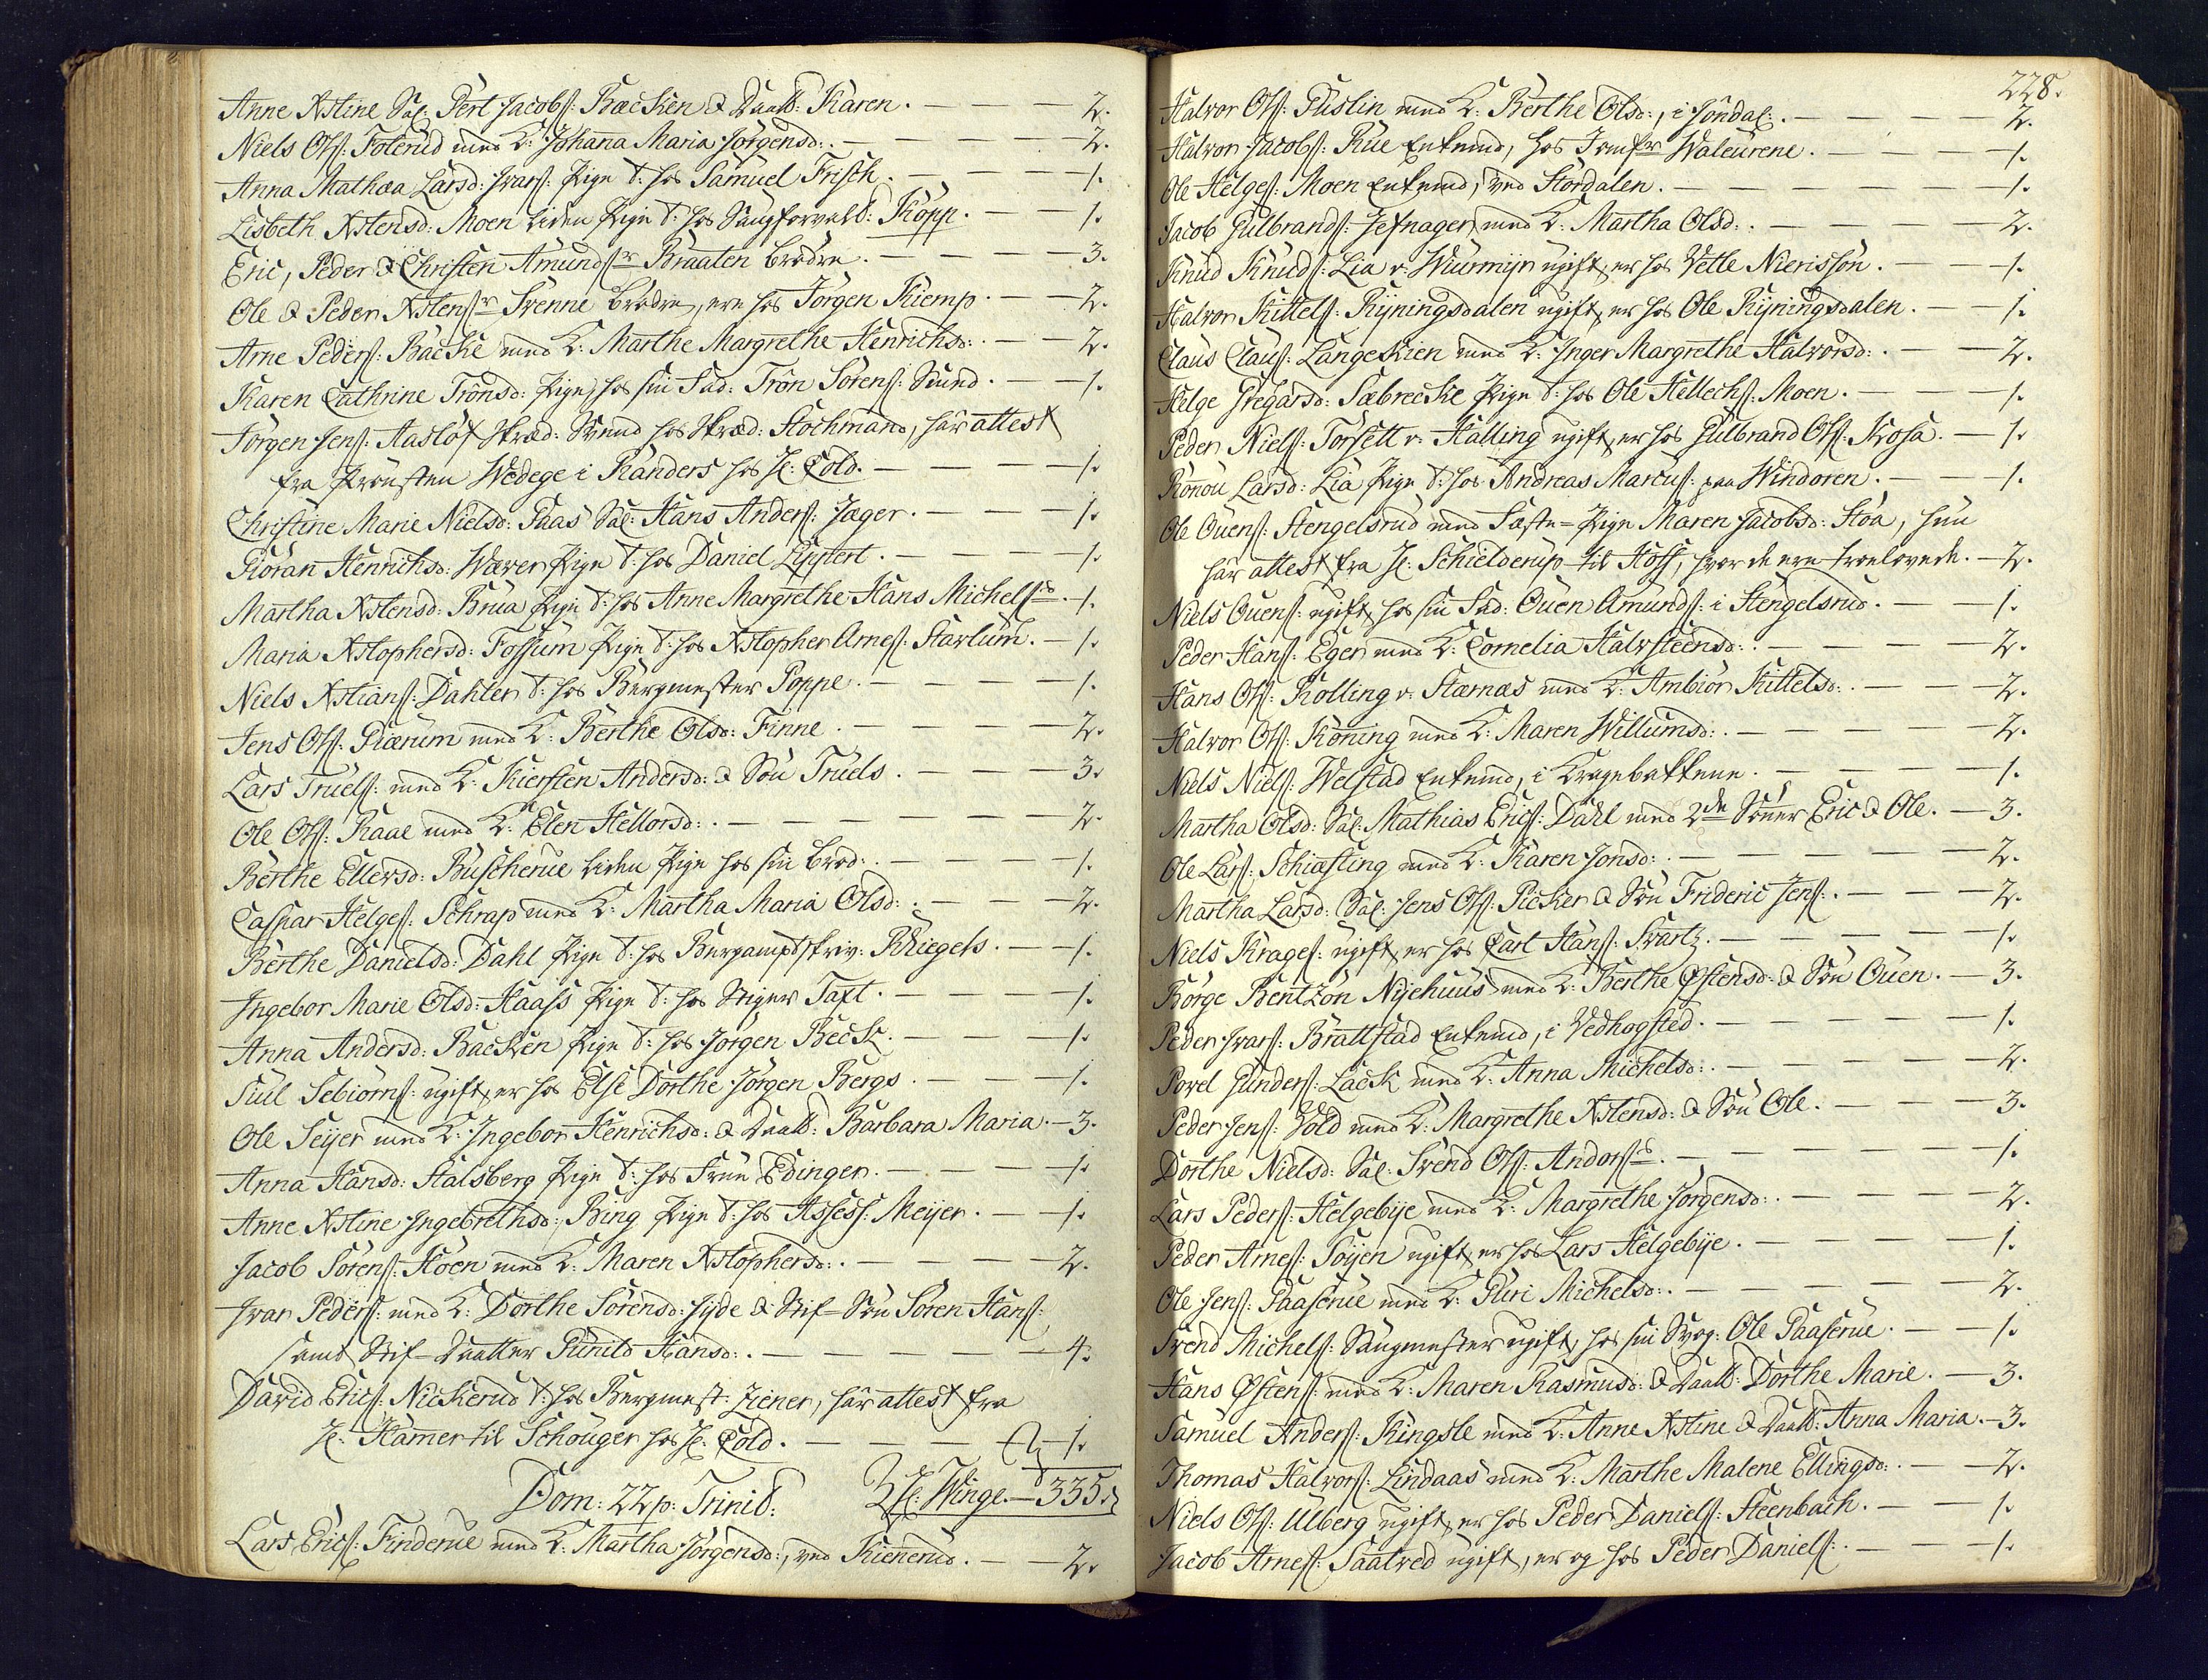 Anne Xstine Sal: Pert Jacobs: Backen & Daatt: Karen. — 2.
Niels Ols: Foterud med K: Johanna Maria Jörgensd: — 2.
Anna Mathæa Larsd: Ivars: Pige t: hos Samuel Frisch. — 1.
Lisbeth Xstensd: Moen liden Pige t: hos Saugforvalt: Kopp. — 1.
Eric, Peder & Christen Amundsr Braaten brødre. — 3.
Ole & Peder Xstensr Svenne brødre, ere hos Jörgen Kiemp. — 2.
Arne Peders: Backe med K: Marthe Margrethe Henrichsd: — 2.
Karen Cathrine Tronsd: Pige, hos sin Fad: Tron Sörens: Smed. — 1.
Jörgen Jens: Aaslöf Skræd: Svend hos Skræd: Stochmand, har attest
fra Provsten Wedege i Randers hos H: Cold. — 1.
Christine Marie Nielsd: Paas Sal: Hans Anders: Jæger. — 1.
Siöran Henrichsd: Wæver Pige t: hos Daniel Lippert. — 1.
Martha Xstensd: Brua Pige t: hos Anne Margrethe Hans Michelss. — 1.
Maria Xstophersd: Fossum Pige t: hos Xstopher Arnes: Starlum. — 1.
Niels Xstians: Dahler t: hos Bergmester Poppe. — 1.
Jens Ols: Giærum med K: Berthe Olsd: Finne. — 2.
Lars Truels: med K: Kiersten Andersd: & Søn Truels. — 3.
Ole Ols: Raae med K: Elen Hellorsd: — 2.
Berthe Ellevsd: Buscherue liden Pige hos sin brod: — 1.
Caspar Helges: Schrap med K: Martha Maria Olsd: — 2.
Berthe Danielsd: Dahl Pige t: hos Bergamptskriv: Rhiegels. — 1.
Ingebor Marie Olsd: Haass Pige t: hos Stiger Taft. — 1.
Anna Andersd: Backen Pige t: hos Jörgen Beck. — 1.
Siul Sebiörns: ugift, er hos Else Dorthe Jörgen Bergs. — 1.
Ole Seyer med K: Ingebor Henrichsd: & Daatt: Barbara Maria. — 3.
Anna Hansd: Halsberg Pige t: hos Frue Edinger. — 1.
Anne Xstine Ingebrethsd: Bing Pige t: hos Assess: Meyer. — 1.
Jacob Sörens: Höen med K: Maren Xstophersd: — 2.
Ivar Peders: med K: Dorthe Sörensd: Hyde & Stif-Søn Sören Hans:
samt Stif-Daatter Gunild Hansd: — 4.
David Erics: Nickerud t: hos Bergmest: Ziener, har attest fra
H: Hamer til Schouger hos H: Cold. — 1.
H: Winge. — 335.
Dom: 22 p: Trinit:
Lars Erics: Finderue med K: Martha Jörgensd:, ved Kiennerud. — 2.
228.
Halvor Ols: Puslin med K: Berthe Olsd:, i Jondal: — 2.
Halvor Jacobs: Rue Enkemd, hos Jomfr Waleurene. — 1.
Ole Helges: Moen Enkemd, ved Stordalen. — 1.
Jacob Gulbrands: Jefnager med K: Martha Olsd: — 2.
Knud Knuds: Lia v: Wurmyr ugift, er hos Vetle Nierisson. — 1.
Halvor Kittels: Ryningsdalen ugift, er hos Ole Ryningsdalen. — 1.
Claus Claus: Langeskien med K: Inger Margrethe Halvorsd: — 2.
Helge Gregarsd: Sæbrecke Pige t: hos Ole Hellechs: Moen. — 1.
Peder Niels: Torsett v: Halling ugift, er hos Gulbrand Ols: Krosa. — 1.
Ronnou Larsd: Lia Pige t: hos Andreas Marcus: paa Windoren. — 1.
Ole Ouens: Stengelsrud med Fæste-Pige Maren Jacobsd: Stöa, hun
har attest fra H: Schielderup til Hoff, hvor de ere troelovede. — 2.
Niels Ouens: ugift, hos sin Fad: Ouen Amunds: i Stengelsrud. — 1.
Peder Hans: Eger med K: Cornelia Halvsteensd: — 2.
Hans Ols: Rolling v: Stærnæs med K: Ambiör Kittelsd: — 2.
Halvor Ols: Koning med K: Maren Willumsd: — 2.
Niels Niels: Welstad Enkemd, i Kragebakkene. — 1.
Martha Olsd: Sal: Mathias Erics: Dahl med 2de Sønner Eric & Ole. — 3.
Ole Lars: Schiæsting med K: Karen Jonsd: — 2.
Martha Larsd: Sal: Jens Ols: Picker & Søn Frideric Jens: — 2.
Niels Krages: ugift, er hos Carl Hans: Svartz. — 1.
Börge Bentzon Nyehuus med K: Berthe Østensd: & Søn Ouen. — 3.
Peder Ivars: Brattstad Enkemd, i Vedhogsted. — 1.
Povel Gunders: Lack med K: Anna Michelsd: — 2.
Peder Jens: Vold med K: Margrethe Xstensd: & Søn Ole. — 3.
Dorthe Nielsd: Sal: Svend Ols: Andorss. — 1.
Lars Peders: Helgebye med K: Margrethe Jörgensd: — 2.
Peder Arnes: Töyen ugift, er hos Lars Helgebye. — 1.
Ole Jens: Paaserue med K: Guri Michelsd: — 2.
Svend Michels: Saugmester ugift, hos sin Svog: Ole Paaserue. — 1.
Hans Østens: med K: Maren Rasmusd: & Daatt: Dorthe Marie. — 3.
Samuel Anders: Kingsle med K: Anne Xstine & Daatt: Anna Maria. — 3.
Thomas Halvors: Lindaas med K: Marthe Malene Ellingsd: — 2.
Niels Ols: Ulberg ugift, er hos Peder Daniels: Steenbach. — 1.
Jacob Arnes: Saatved ugift, er og hos Peder Daniels: — 1.